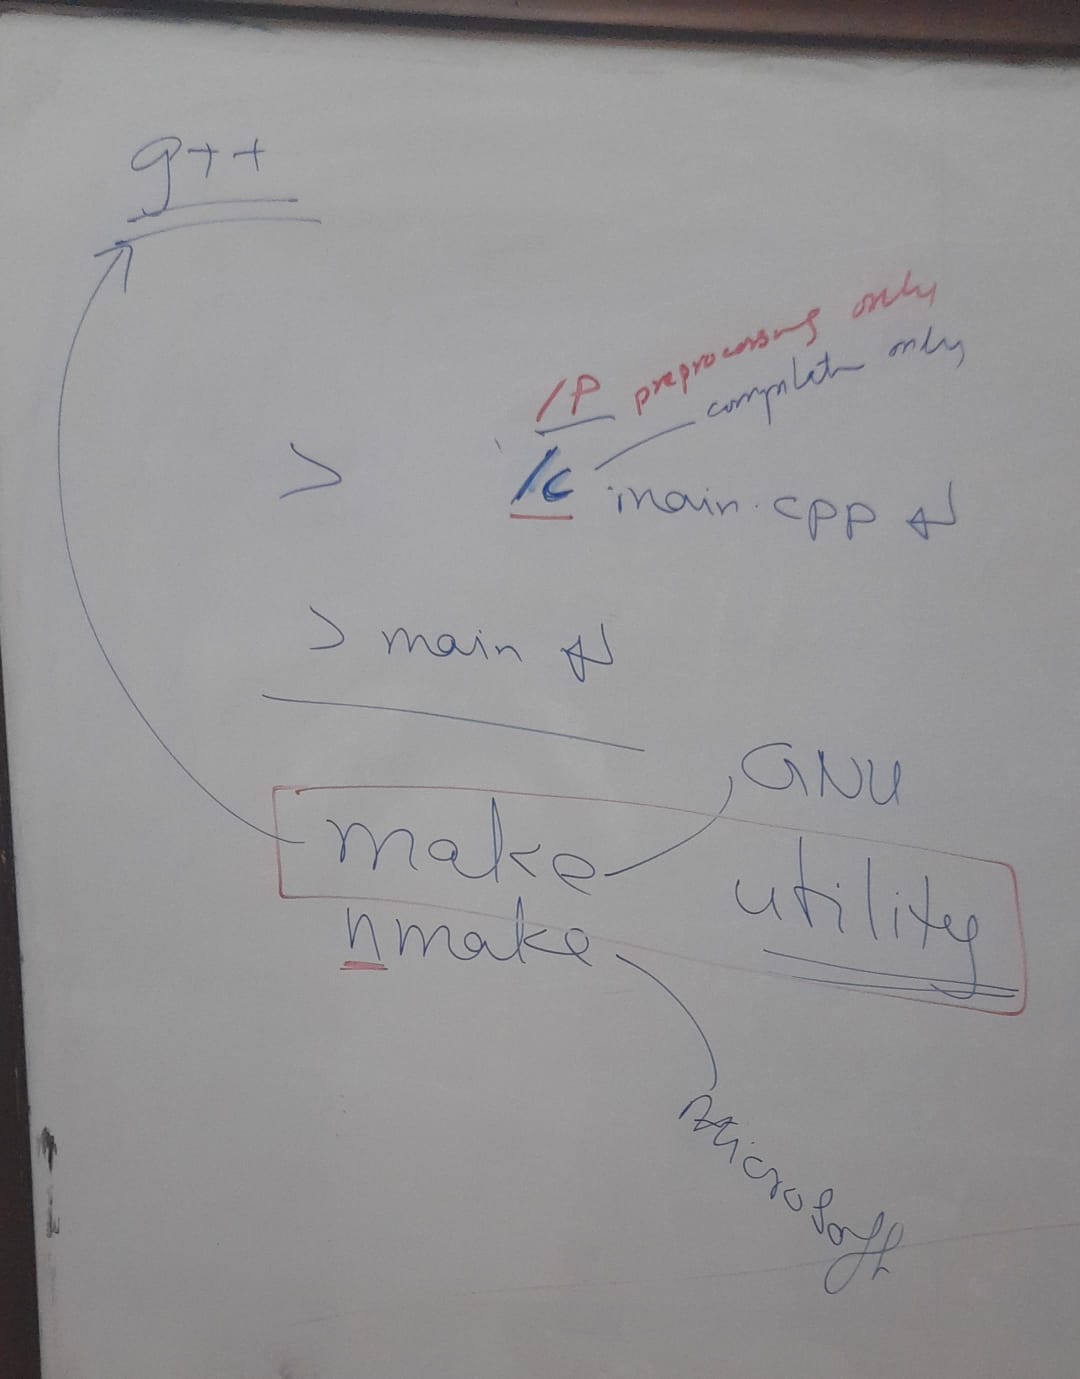 g++
/P preprocessing only
compilation only
> /c main.cpp ↵
> main ↵
GNU
make utility
nmake
Microsoft